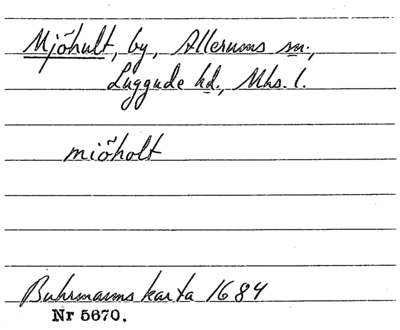 Mjöhult, by, Allerums sn.,
Luggude hd., Mhs. l.
miöholt
Buhrmanns karta 1684
Nr 5670.